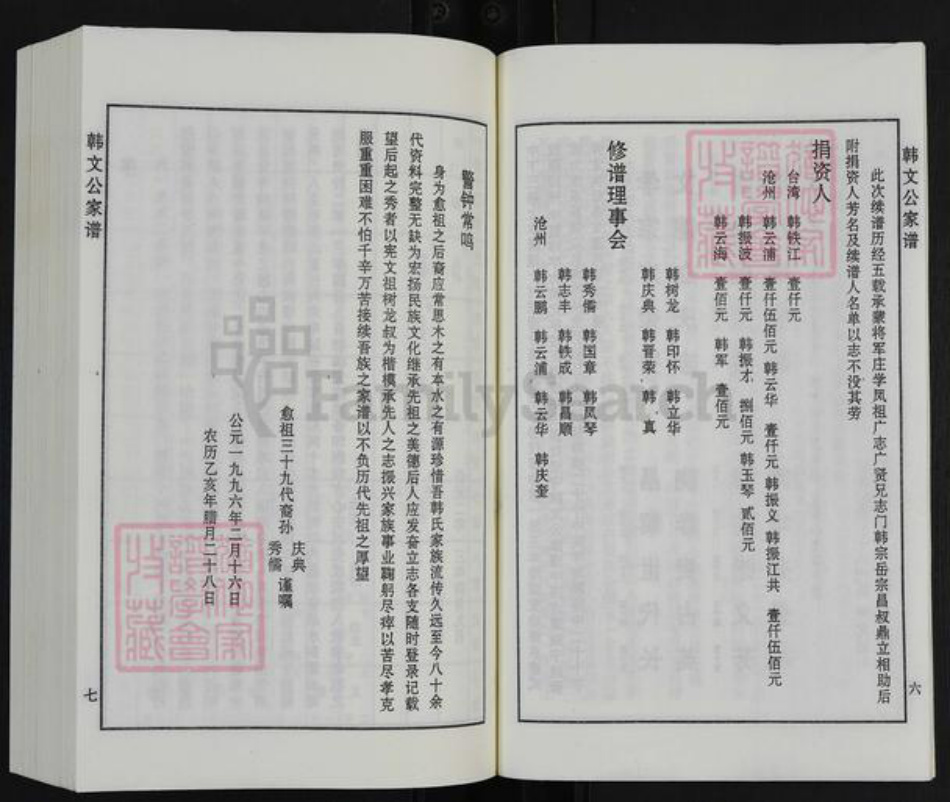 韩文公家谱
此次续谱历经五载承蒙将军庄学凤祖广志广贤兄志门韩宗岳宗昌叔鼎立相助后
附捐资人芳名及续谱人名单以志不没其劳
捐资人
台湾 韩铁江 壹仟元
沧州 韩云浦 壹仟伍佰元 韩云华 壹仟元 韩振义 韩振江共 壹仟伍佰元
韩振波 壹仟元 韩振才 捌佰元 韩玉琴 贰佰元
韩云海 壹佰元 韩军 壹佰元
修谱理事会
韩树龙 韩印怀 韩立华
韩庆典 韩晋荣 韩真
韩秀儒 韩国章 韩凤琴
韩志丰 韩铁成 韩昌顺
沧州 韩云鹏 韩云浦 韩云华 韩庆奎
六
警钟常鸣
身为愈祖之后裔应常思木之有本水之有源珍惜吾韩氏家族流传久远至今八十余
代资料完整无缺为宏扬民族文化继承先祖之美德后人应发奋立志各支随时登录记载
望后起之秀者以宪文祖树龙叔为楷模承先人之志振兴家族事业鞠躬尽瘁以苦尽孝克
服重重困难不怕千辛万苦接续吾族之家谱以不负历代先祖之厚望
愈祖三十九代裔孙 庆典 秀儒 谨嘱
公元一九九六年二月十六日
农历乙亥年腊月二十八日
韩文公家谱
七
FamilySearch